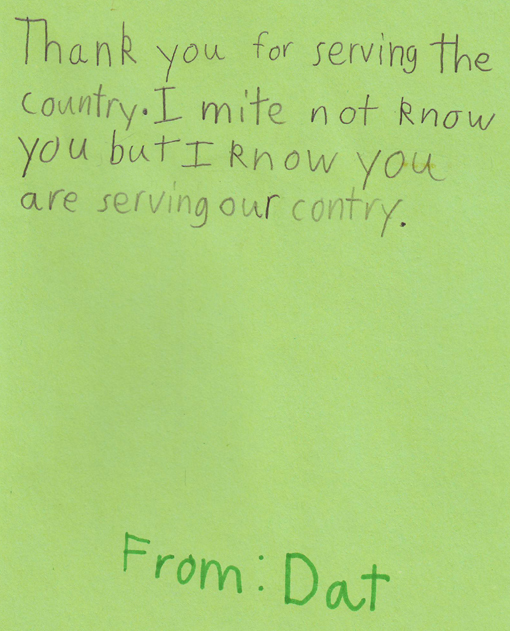 Thank you for serving the
country. I mite not know
you but I know you
are serving our contry.
From: Dat